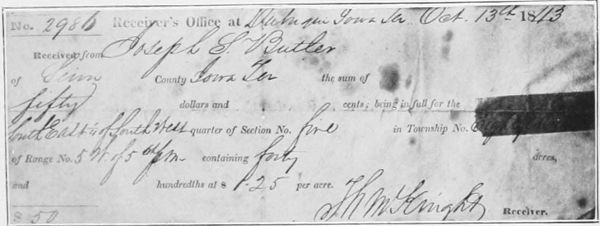 No. 2986 Receiver's Office at Dubuque Iowa Ter. Oct. 13th 1843
Received from Joseph S. Butler
of Linn County Iowa Ter the sum of
fifty dollars and cents; being in full for the
South East ¼ of South West quarter of Section No. five in Township No.
of Range No. 5 W. of 5th P.M. containing forty acres,
and hundredths at $ 1.25 per acre.
$ 50 Th McKnight Receiver.